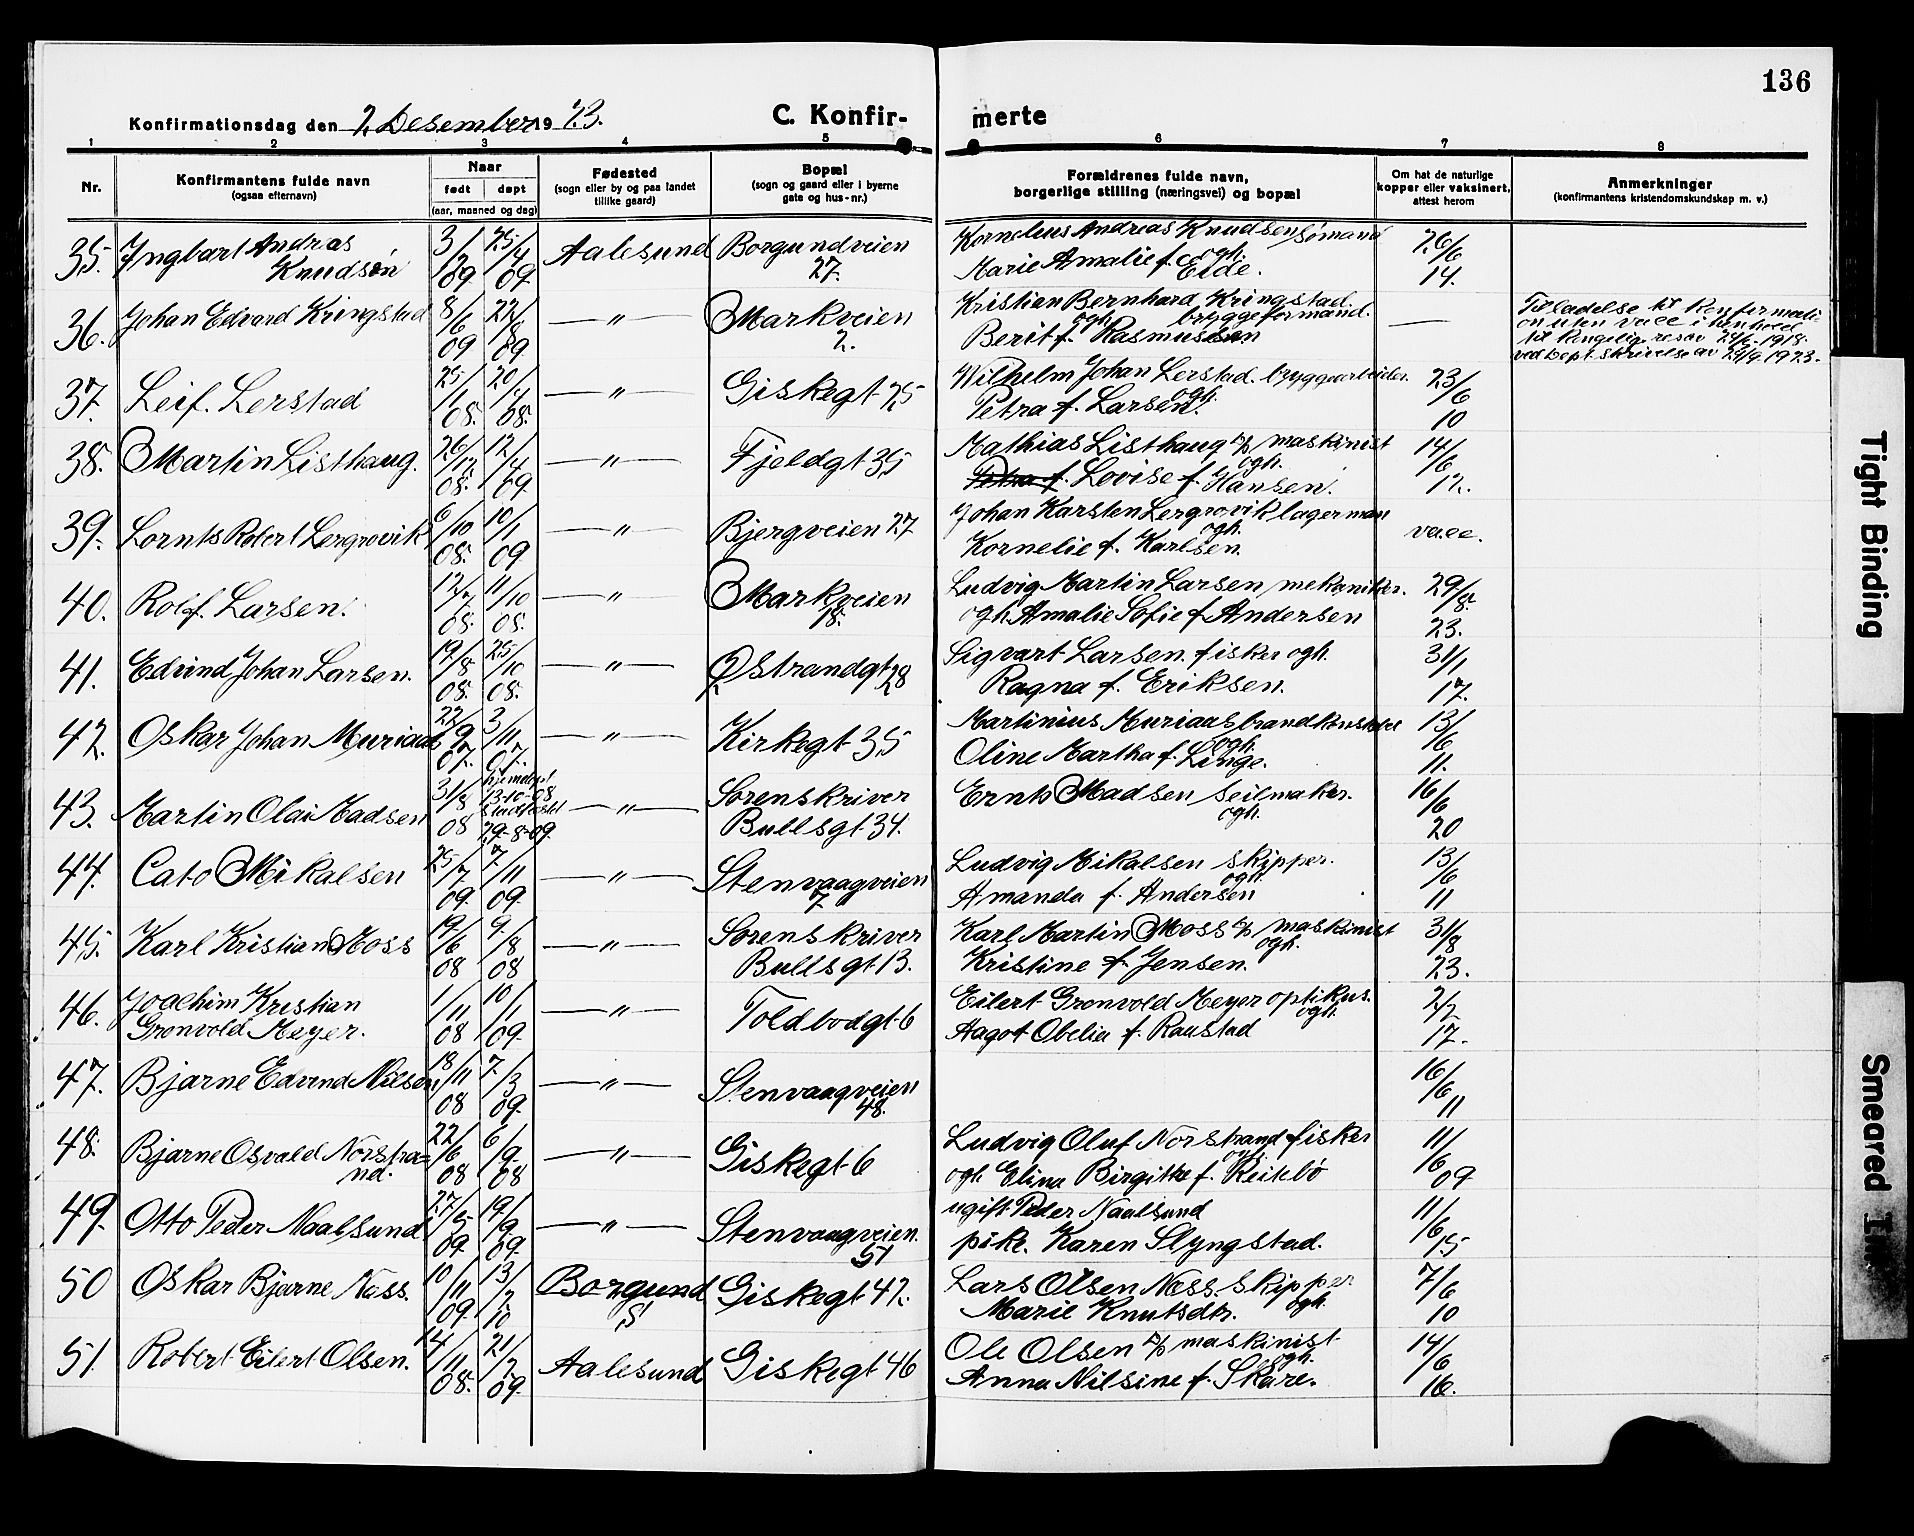 136
Konfirmationsdag den 2. Desember 1923. C. Konfirmerte
1 2 3 4 5 6 7 8
Nr. | Konfirmantens fulde navn (ogsaa efternavn) | Naar født døpt (aar, maaned og dag) | Fødested (sogn eller by og paa landet tillike gaard) | Bopæl (sogn og gaard eller i byerne gate og hus-nr.) | Forældrenes fulde navn, borgerlige stilling (næringsvei) og bopæl | Om hat de naturlige kopper eller vaksinert, attest herom | Anmerkninger (konfirmantens kristendomskundskap m. v.)
35. Ingvart Andras Knudsøn 3/2 09 25/4 09 Aalesund Borgundveien 27. Kornelius Andreas Knudsen sømand ogh. Marie Amalie f. Eide. 26/6 14.
36. Johan Edvard Kringstad 8/6 09 22/8 09 —"— Markveien 2. Kristian Bernhard Kringstad. bryggeformand. ogh. Berit f. Rasmussen — Tilladelse til konfirmation uten vacc i henhold til kongelig resav 24/6-1918. ved bept. skrivelse av 24/9.1923.
37. Leif. Lerstad 25/1 08. 20/4 08. —"— Giskegt 25 Wilhelm Johan Lerstad. bryggearbeider. ogh. Petra f. Larsen. 23/6 10
38. Martin Listhaug. 26/12 08. 12/4 09. —"— Fjeldgt 35 Mathias Listhaug d/s maskinist ogh. Petra f. Lovise f. Hansen. 14/6 12.
39. Lornts Robert Lergrovik 6/10 08. 10/1 09. —"— Bjergveien 27 Johan Karsten Lergrovik lagerman ogh. Kornelie f. Karlsen. vacc.
40. Rolf. Larsen. 12/7 08. 11/10 08. —"— Markveien 18. Ludvig Martin Larsen mekaniker. ogh. Amalie Sofie f. Andersen 29/8. 23.
41. Edvind Johan Larsen. 19/8 08. 25/10 08. —"— Ø. strandgt 28 Sigvart Larsen. fisker ogh. Ragna f. Eriksen. 31/1 17.
42. Oskar Johan Muriaas 22/9 07. 3/11 07. —"— Kirkegt 35 Martinius Muriaas brandkonstabel ogh. Oline Martha f. Linge. 13/6 11.
43. Martin Olai Madsen 31/8 08 hjemdøpt 13-10-08 stadfestet 29-8-09. —"— Sorenskriver Bullsgt 34. Ernts Madsen seilmaker. ogh. 16/6 20
44. Cato Mikalsen 25/7 09. 7/11 09. —"— Stenvaagveien 7. Ludvig Mikalsen skipper. ogh. Amanda f. Andersen 13/6 11
45. Karl Kristian Moss 19/6 08 9/8 08 —"— Sorenskriver Bullsgt 13. Karl Martin Moss d/s maskinist ogh. Kristine f. Jensen. 31/8 23.
46. Joachim Kristian Gronvold Meyer. 1/11 08 10/1 09. —"— Toldbodgt 6 Eilert Gronvold Meyer optikus. ogh. Aagot Obelia f. Raustad 2/2 17.
47. Bjarne Edvind Nilsen 18/11 08 7./3 09. —"— Stenvaagveien 48. 16/6 11
48. Bjarne Osvald Norstrand. 22/6 08 6/9. 08 —"— Giskegt 6 Ludvig Oluf Norstrand fisker ogh. ogh. Elina Birgitte f. Reitebø 11/6 09
49. Otto Peder Naalsund 27/5 09. 19/9 09. —"— Stenvaagveien. 51 ugift Peder Naalsund pike. Karen Slyngstad. 11/6 15
50 Oskar Bjarne Næss. 10/11 09. 13/2. 10 Borgund S Giskegt 42. Lars Olsen Næss. skipper ogh. Marie Knutsdtr. 7/6 10
51. Robert Eilert Olsen. 14/11 08. 21/2 09. Aalesund Giskegt 46 Ole Olsen d/s maskinist ogh. Anna Nilsine f. Skare. 14/6 16.
Tight Binding
Smeared Ink